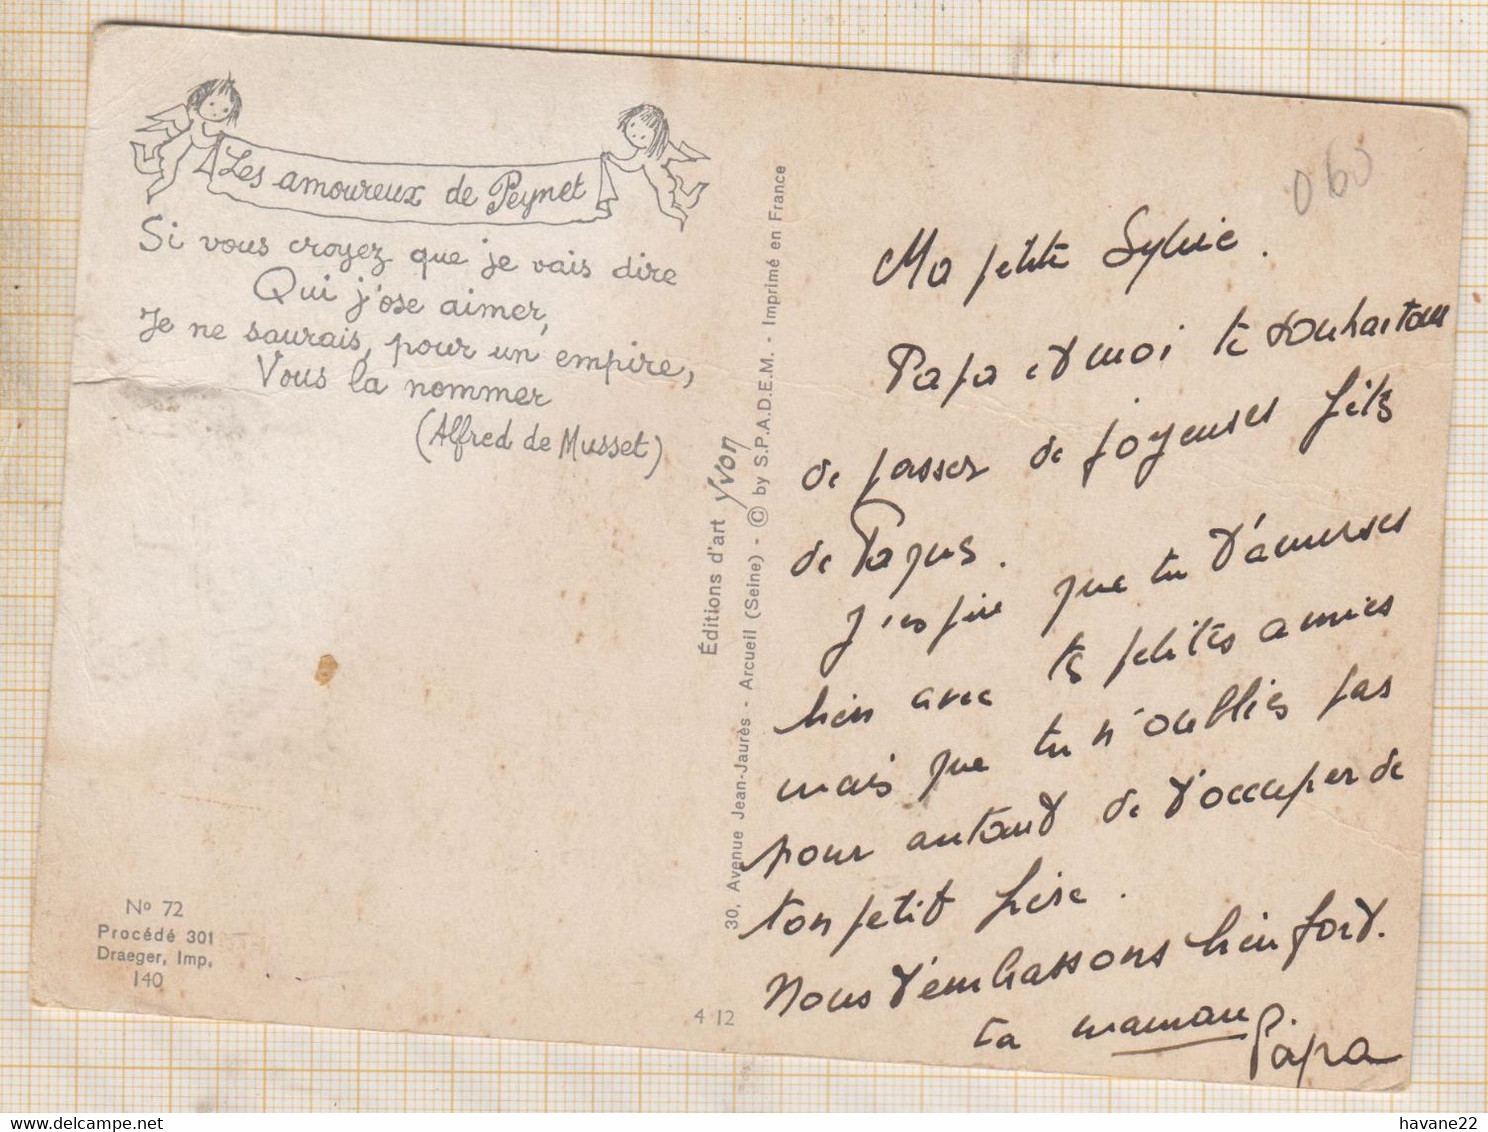 Les amoureux de Peynet
Si vous croyez que je vais dire
Qui j'ose aimer,
Je ne saurais, pour un empire,
Vous la nommer
(Alfred de Musset)
No 72
Procédé 301
Draeger, Imp.
140
4 12
Éditions d'art Yvon
30, Avenue Jean-Jaurès - Arcueil (Seine) - © by S.P.A.D.E.M. - Imprimé en France
060
Ma petite Sylvie.
Papa et moi te souhaitons
de passer de joyeuses fêtes
de Paques.
J'espère que tu t'amuses
bien avec tes petites amies
mais que tu n'oublies pas
pour autant de t'occuper de
ton petit frère.
Nous t'embrassons bien fort.
ta maman
Papa
havane22